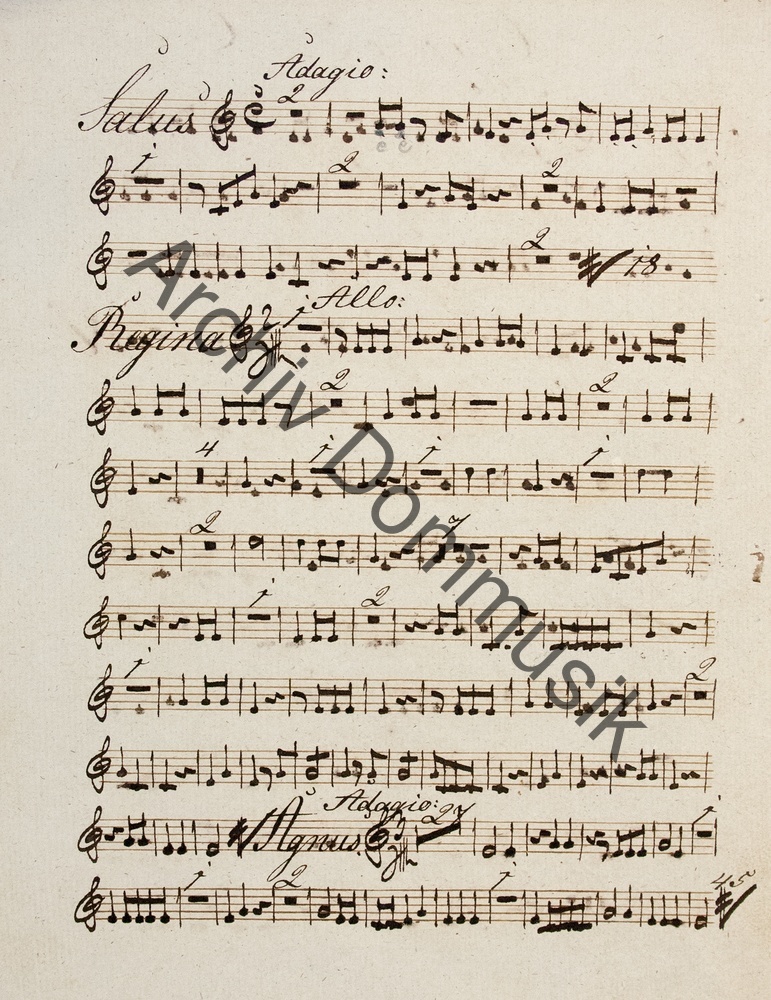 Adagio:
Salus 2
1 2 2
2 18.
Allo:
Regina 1
2 2
4 1 1 1
2 7
1 2
1 2
Adagio:
Agnus 27 1
1 2 1 45
Archiv Dommusik